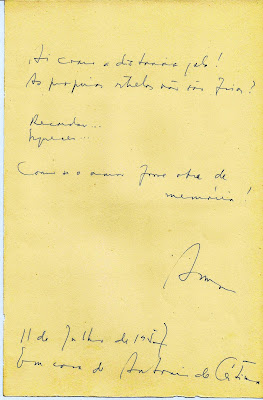 ¡Ai como a distancia gela!
As proprias estrelas não são frias?
Recordar...
Esquecer...
Como se o amor fosse obra de
memória!
11 de Julho de 1957
Em casa de Antonio de